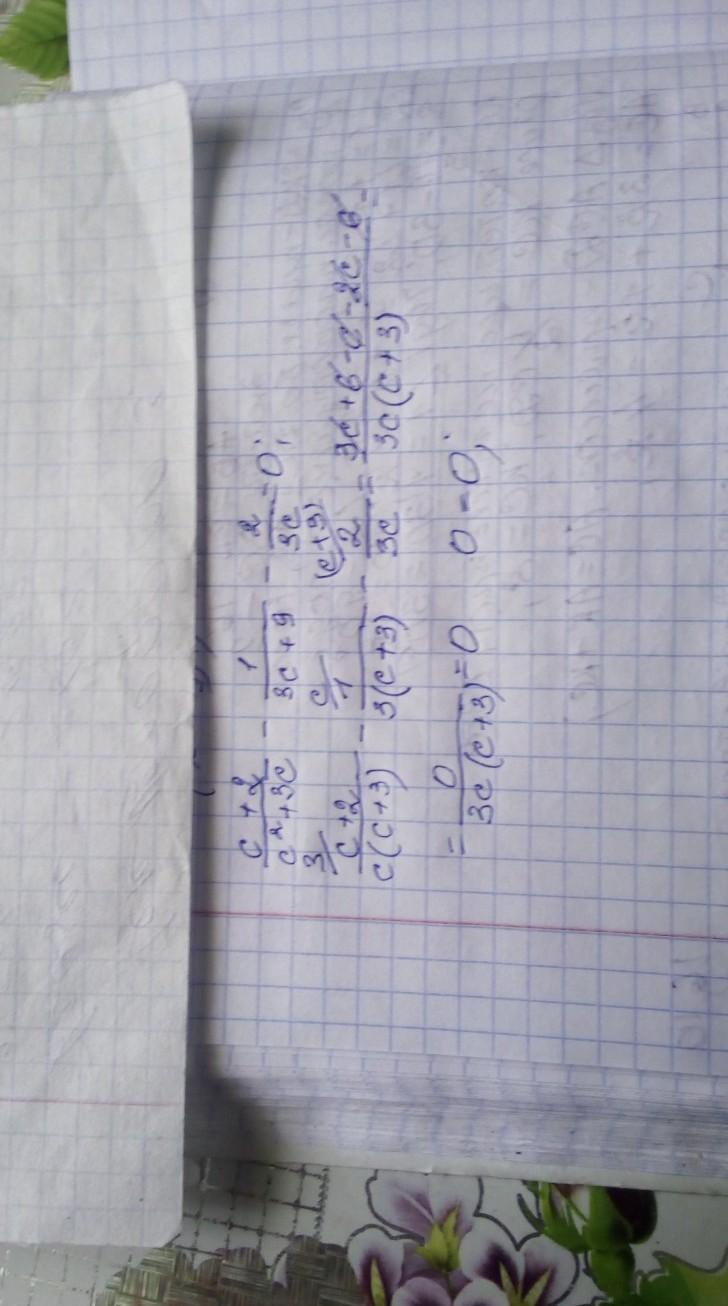 (c+2)/(c²+3c) - 1/(3c+9) - 2/(3c) = 0;
3/ (c+2)/(c(c+3)) - c/ 1/(3(c+3)) - (c+3)/ 2/(3c) = (3c+6-c-2c-6)/(3c(c+3)) =
= 0/(3c(c+3)) = 0 0 = 0;